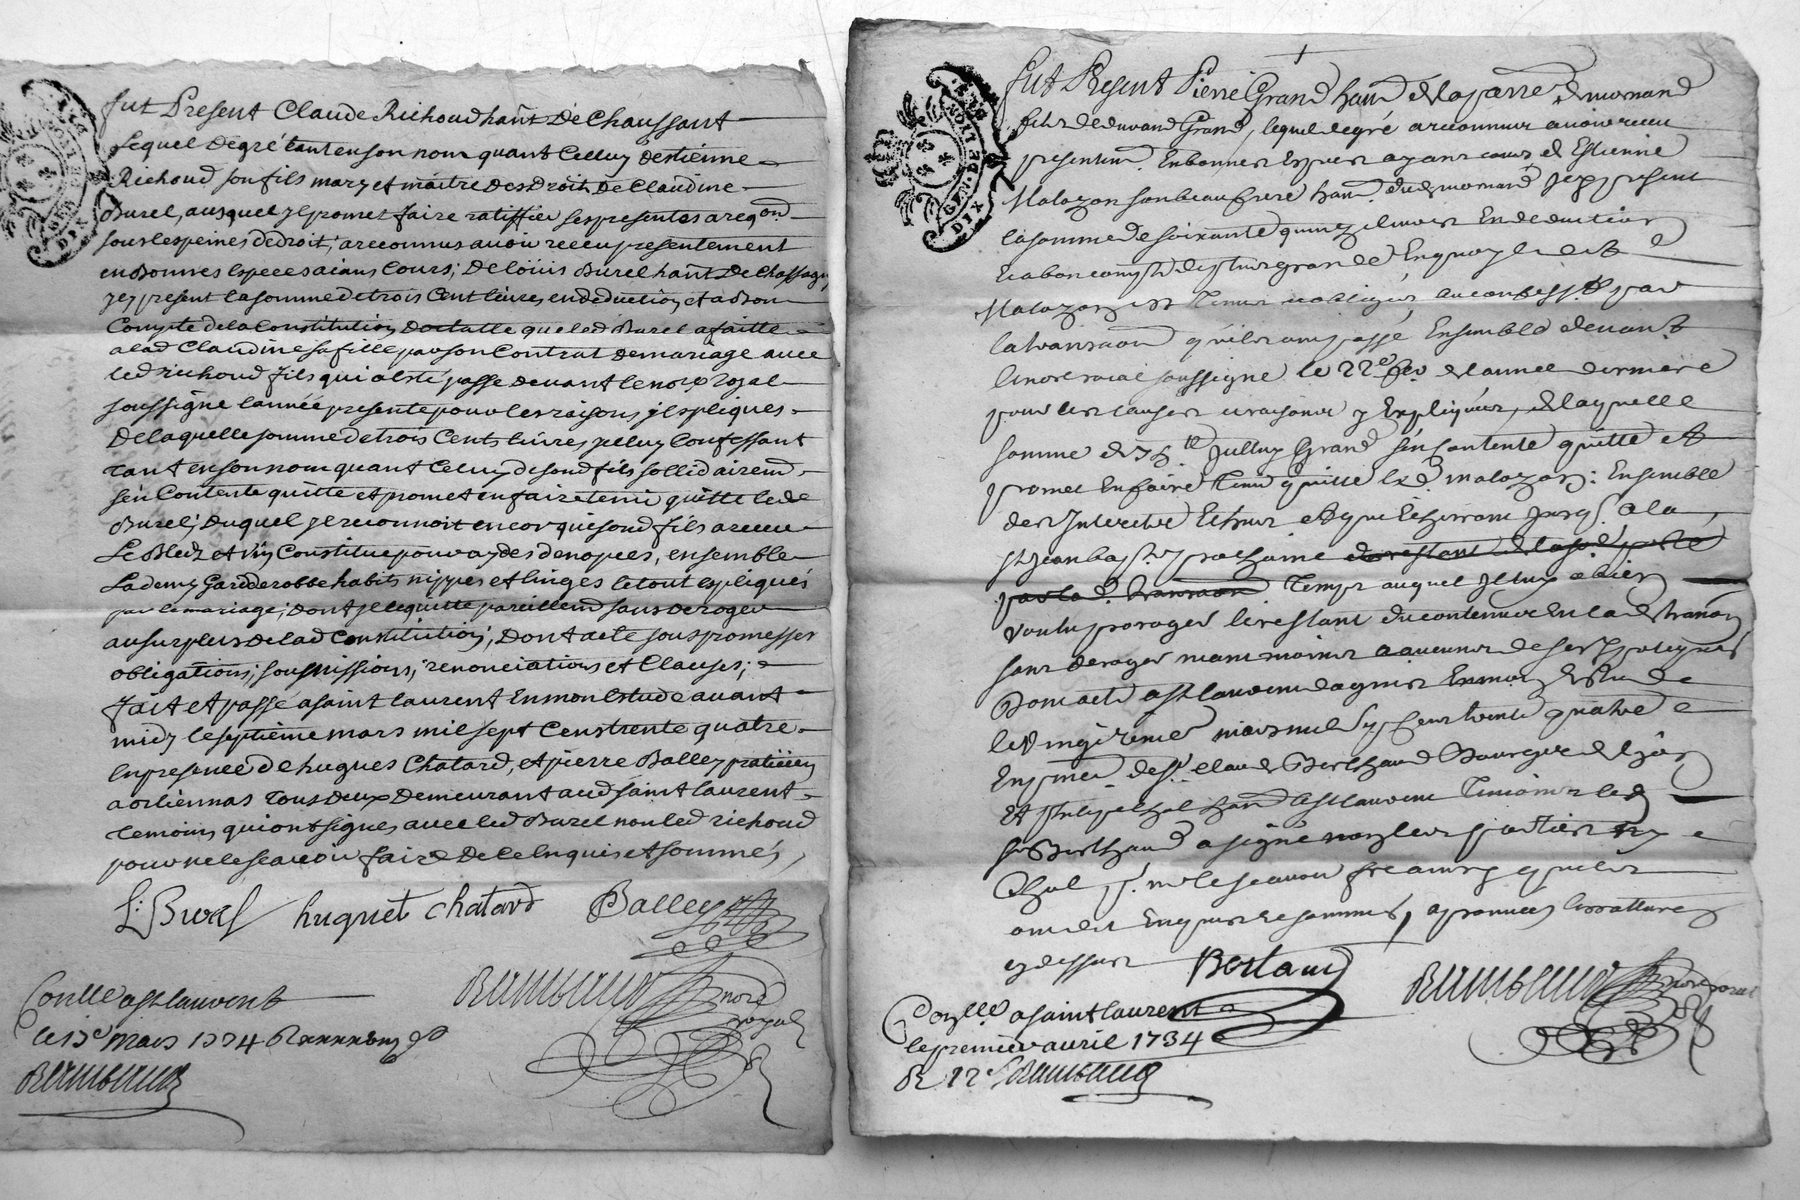 fut Present Claude Richoud hant De Chaussant
Lequel de gré tant en son nom quant Celluy destienne
Richoud son fils mary et maitre des Droits De Claudine
Burel, auquel jl promet faire ratiffier ses presentes a reqon
sous les peines de droit; a reconnus avoir receu presentement
en Bonnes Especes aians Cours; De Loüis Burel hant De Chassagn
jcy present la somme de trois Cent livres, en deduction et a Bon
Compte de la Constitution Dotalle que led Burel a faitte
a lad Claudine sa fille par son Contrat de mariage avec
led richoud fils qui a esté passe devant le nore Royal
soussigne l'année presente pour les raisons y Expliques
De laquelle somme de trois Cents livres jcelluy Confessant
tant en son nom quant Celuy de sond fils sollidairemt
s'en Contente quitte et promet en faire tenir quitte led
Burel; duquel jl reconnoit encor que sond fils a receu
Le Bled et vin Constitue pour aydes de nopces, ensemble
La demy Garderobbe habits nippes et linges le tout Expliqués
par le mariage; dont jl le quitte pareillemt sans deroger
au surplus de lad Constitution; Dont acte sous promesses
obligations, soumissions, renonciations et Clauses;
fait et passé a saint laurent En mon Estude avant
midy le septieme mars mil sept Cens trente quatre
En presence de hugues Chatard, et pierre Balley praticien
a orliennas Tous deux Demeurant aud saint laurent
temoins qui ont signes avec led Burel non led richoud
pour ne le scavoir faire De ce Enquis et sommés,
L: Burel huguet chatard Balley
Conllé a st laurent
le 13e Mars 1734
Rambaud
Rambaud nore royal
fut Present Pierre Grand hant de la parre de mornand
fils de Grand, lequel de gré a reconnu avoir receu
presentemt En bonnes Especes ayant cours de Estienne
Malozon son beau frere hant dud mornand jcy present
la somme de soixante quinze livres En deduction
Et a bon compte de plus grande En quoy led
Malozon Est tenu et obligé au confessant par
la transaon qu'ils ont passé Ensemble devant
le nore roial soussigné le 22e de l'année derniere
pour les causes et raisons y Expliquées, de laquelle
somme de 75 tt jcelluy Grand s'en contente quitte et
promet En faire tenir quitte led malozon: Ensemble
des Interets Echeus et qui Echerront jusq. a la
st jean baptiste prochaine du restant de la sod. porté
par lad. transaon temps auquel jcelluy a bien
voulu proroger le restant du contenu En lad. transon
sans deroger neanmoins a aucunes de ses hypoteques
Dont acte a st laurent dagnier En mon Estude
le vingtieme mars mil sept cent trente quatre
En pnce de sr. claude Berthaud Bourgeois de lyon
Et hant de st laurent temoins led
sr Berthaud a signé non les parties ny
pr. ne le scavoir fre ainsy qu'ils
ont dit Enquis et sommés, approuvées les rattures
cy dessus
Bertaud Rambaud nore royal
Conllé a saint laurent
le premier avril 1734
R 12 s Rambaud
GEN. DE LYON
DIX